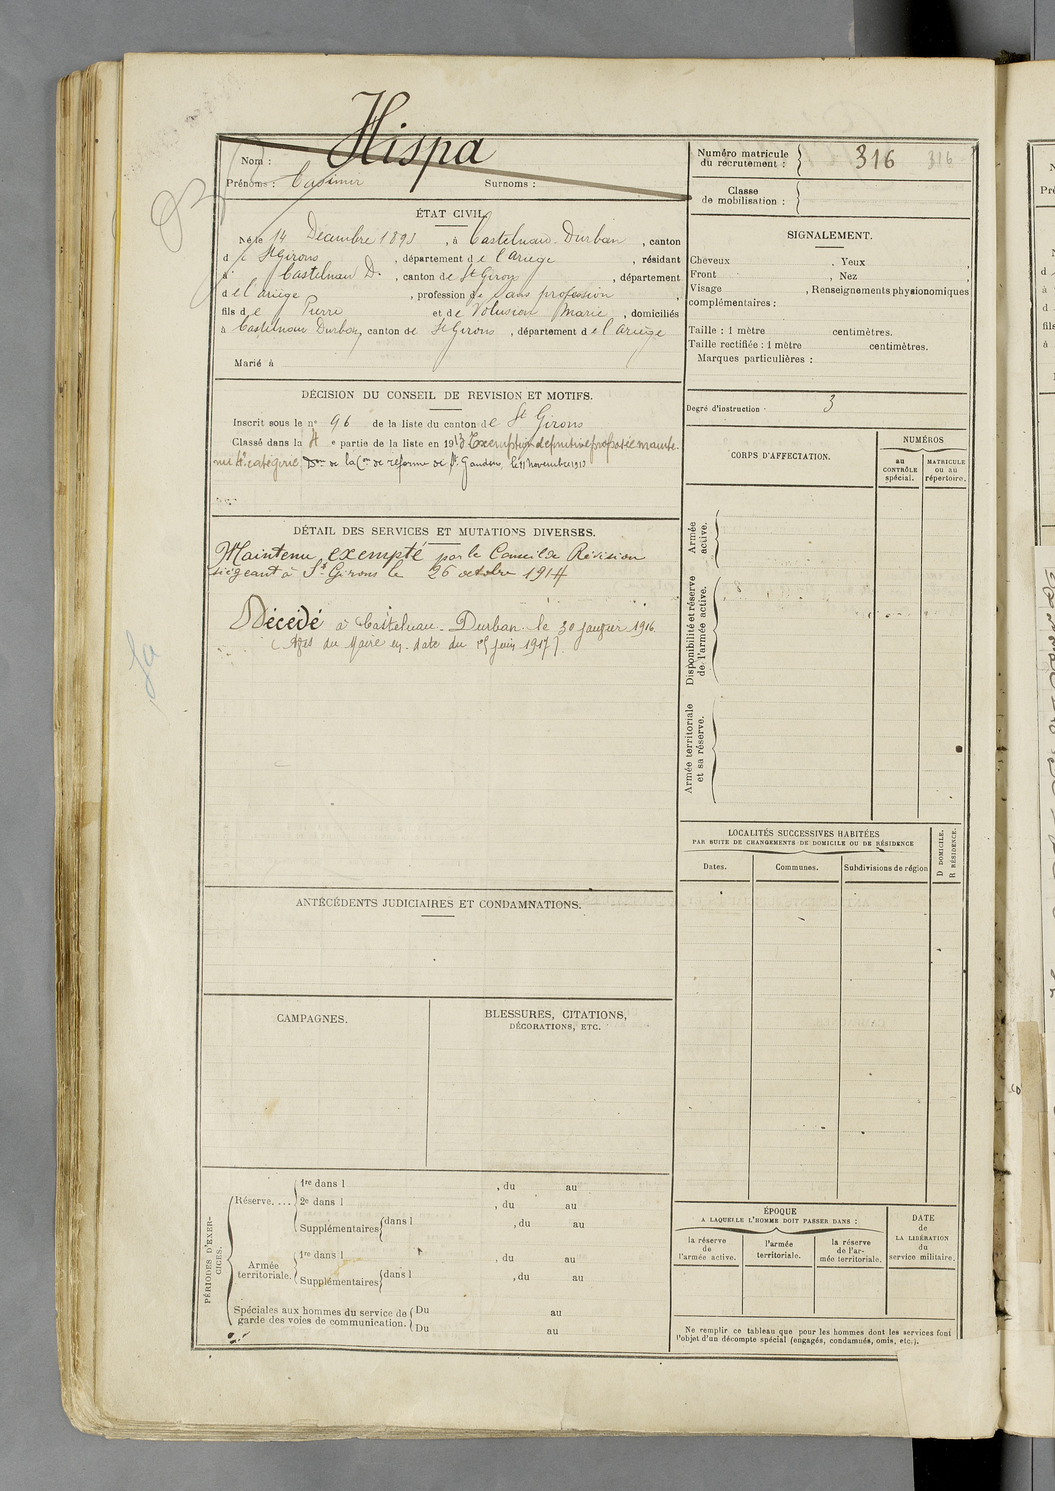 Hispa
Nom :
Prénoms : Casimir Surnoms :
Numéro matricule du recrutement : 316 316
Classe de mobilisation :
ÉTAT CIVIL.
Né le 14 Décembre 1893, à Castelnau-Durban, canton
de St Girons, département de l'Ariège, résidant
à Castelnau D., canton de St Girons, département
de l'Ariège, profession de sans profession,
fils de Pierre et de Volusian Marie, domiciliés
à Castelnau Durban, canton de St Girons, département de l'Ariège
Marié à
DÉCISION DU CONSEIL DE REVISION ET MOTIFS.
Inscrit sous le n° 96 de la liste du canton de St Girons
Classé dans la 4 e partie de la liste en 1913 Exemption définitive proposée mainte-
nu 4e catégorie, Don de la Con de réforme de St Gaudens, le 11 novembre 1913
DÉTAIL DES SERVICES ET MUTATIONS DIVERSES.
Maintenu exempté par le Conseil de Révision
siégeant à St Girons le 26 octobre 1914
Décédé à Castelnau-Durban le 30 janvier 1916
(Avis du Maire en date du 15 juin 1917)
ANTÉCÉDENTS JUDICIAIRES ET CONDAMNATIONS.
CAMPAGNES.
BLESSURES, CITATIONS,
DÉCORATIONS, ETC.
PÉRIODES D'EXER-
CICES.
Réserve....
1re dans l , du au
2e dans l , du au
Supplémentaires dans l , du au
Armée territoriale.
1re dans l , du au
Supplémentaires dans l , du au
Spéciales aux hommes du service de garde des voies de communication.
Du au
Du au
SIGNALEMENT.
Cheveux , Yeux ,
Front , Nez ,
Visage , Renseignements physionomiques
complémentaires :
Taille : 1 mètre centimètres.
Taille rectifiée : 1 mètre centimètres.
Marques particulières :
Degré d'instruction : 3
CORPS D'AFFECTATION.
NUMÉROS
au CONTRÔLE spécial.
MATRICULE ou au répertoire.
Armée active.
Disponibilité et réserve de l'armée active.
Armée territoriale et sa réserve.
LOCALITÉS SUCCESSIVES HABITÉES
PAR SUITE DE CHANGEMENTS DE DOMICILE OU DE RÉSIDENCE
D DOMICILE.
R RÉSIDENCE.
Dates. Communes. Subdivisions de région
ÉPOQUE
A LAQUELLE L'HOMME DOIT PASSER DANS :
la réserve de l'armée active.
l'armée territoriale.
la réserve de l'armée territoriale.
DATE de LA LIBÉRATION du service militaire.
Ne remplir ce tableau que pour les hommes dont les services font
l'objet d'un décompte spécial (engagés, condamnés, omis, etc.).